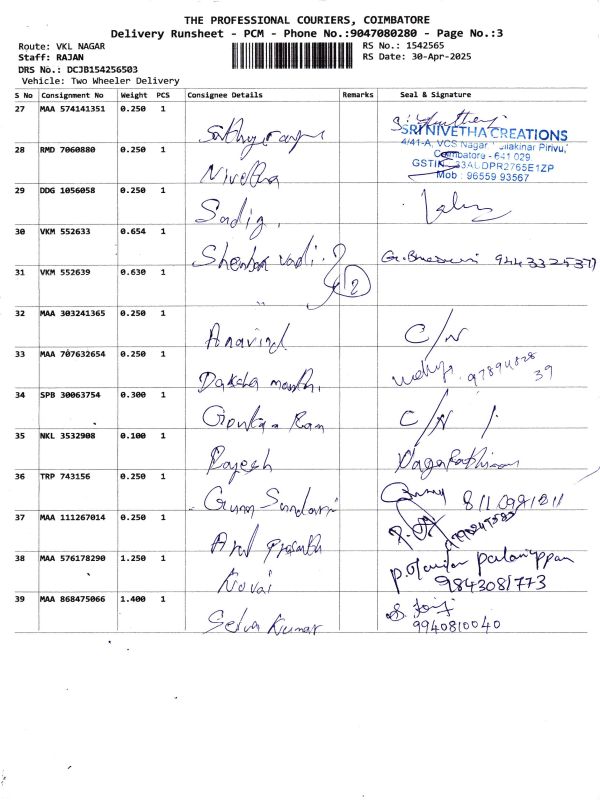 THE PROFESSIONAL COURIERS, COIMBATORE
Delivery Runsheet - PCM - Phone No.:9047080280 - Page No.:3
Route: VKL NAGAR RS No.: 1542565
Staff: RAJAN RS Date: 30-Apr-2025
DRS No.: DCJB154256503
Vehicle: Two Wheeler Delivery
S No Consignment No Weight PCS Consignee Details Remarks Seal & Signature
27 MAA 574141351 0.250 1
SRI NIVETHA CREATIONS
4/41-A, VCS Nagar Pirivu,
Coimbatore - 641 029
GSTIN 33ALDPR2765E1ZP
Mob : 96559 93567
28 RMD 7060880 0.250 1
Nivetha
29 DDG 1056058 0.250 1
Sadiq.
30 VKM 552633 0.654 1
Shenbak Vadi. 9443325377
31 VKM 552639 0.630 1
2
32 MAA 303241365 0.250 1
Aravind C/N
33 MAA 707632654 0.250 1
Daksha 97894828
39
34 SPB 30063754 0.300 1
Ram C/N
35 NKL 3532908 0.100 1
Rajesh
36 TRP 743156 0.250 1
Guna Sundari
37 MAA 111267014 0.250 1
Arul Prasath
38 MAA 576178290 1.250 1
Kovai 9843081773
39 MAA 868475066 1.400 1
Selva Kumar 9940810040